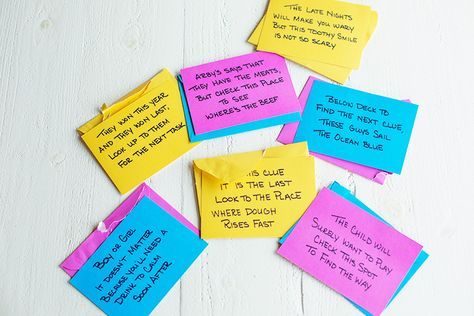 The Late Nights
Will make you wary
But this toothy smile
is not so scary
Arby's says that
they have the meats,
But check this place
to see
where's the beef
Below deck to
find the next clue,
these guys sail
the ocean blue
They won this year
and they won last,
Look up to them
for the next task
This clue
it is the last
Look to the place
where dough
rises fast
Boy or girl
it doesn't matter
because you'll need a
drink to calm
soon after
The child will
surely want to play
check this spot
to find the way